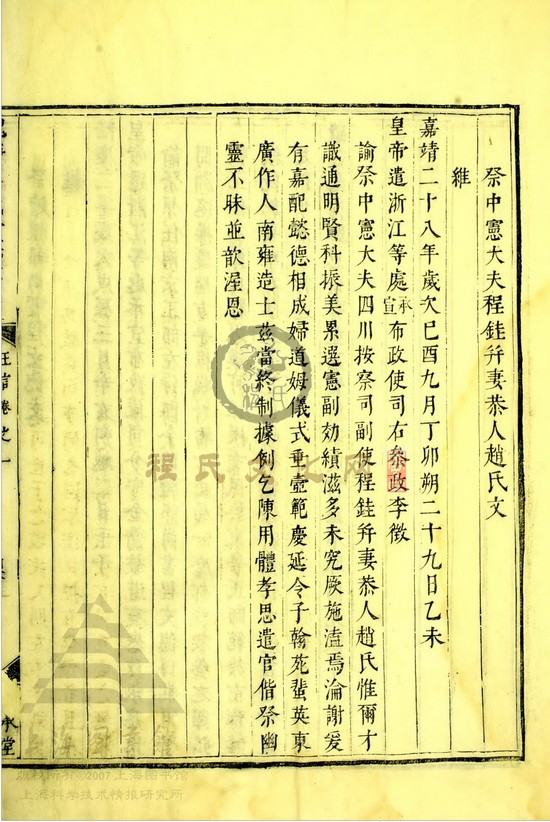 祭中憲大夫程鈺幷妻恭人趙氏文
維
嘉靖二十八年歲次己酉九月丁卯朔二十九日乙未
皇帝遣浙江等處承宣布政使司右叅政李徵
諭祭中憲大夫四川按察司副使程鈺幷妻恭人趙氏惟爾才
識通明賢科振美累遷憲副効績滋多未究厥施溘焉淪謝爰
有嘉配懿德相成婦道姆儀式垂壼範慶延令子翰苑蜚英東
廣作人南雍造士茲當終制據例乞陳用體孝思遣官偕祭幽
靈不昧並歆渥恩
卷之一
承堂
程氏文化网
版权所有©2007上海图书馆
上海科学技术情报研究所